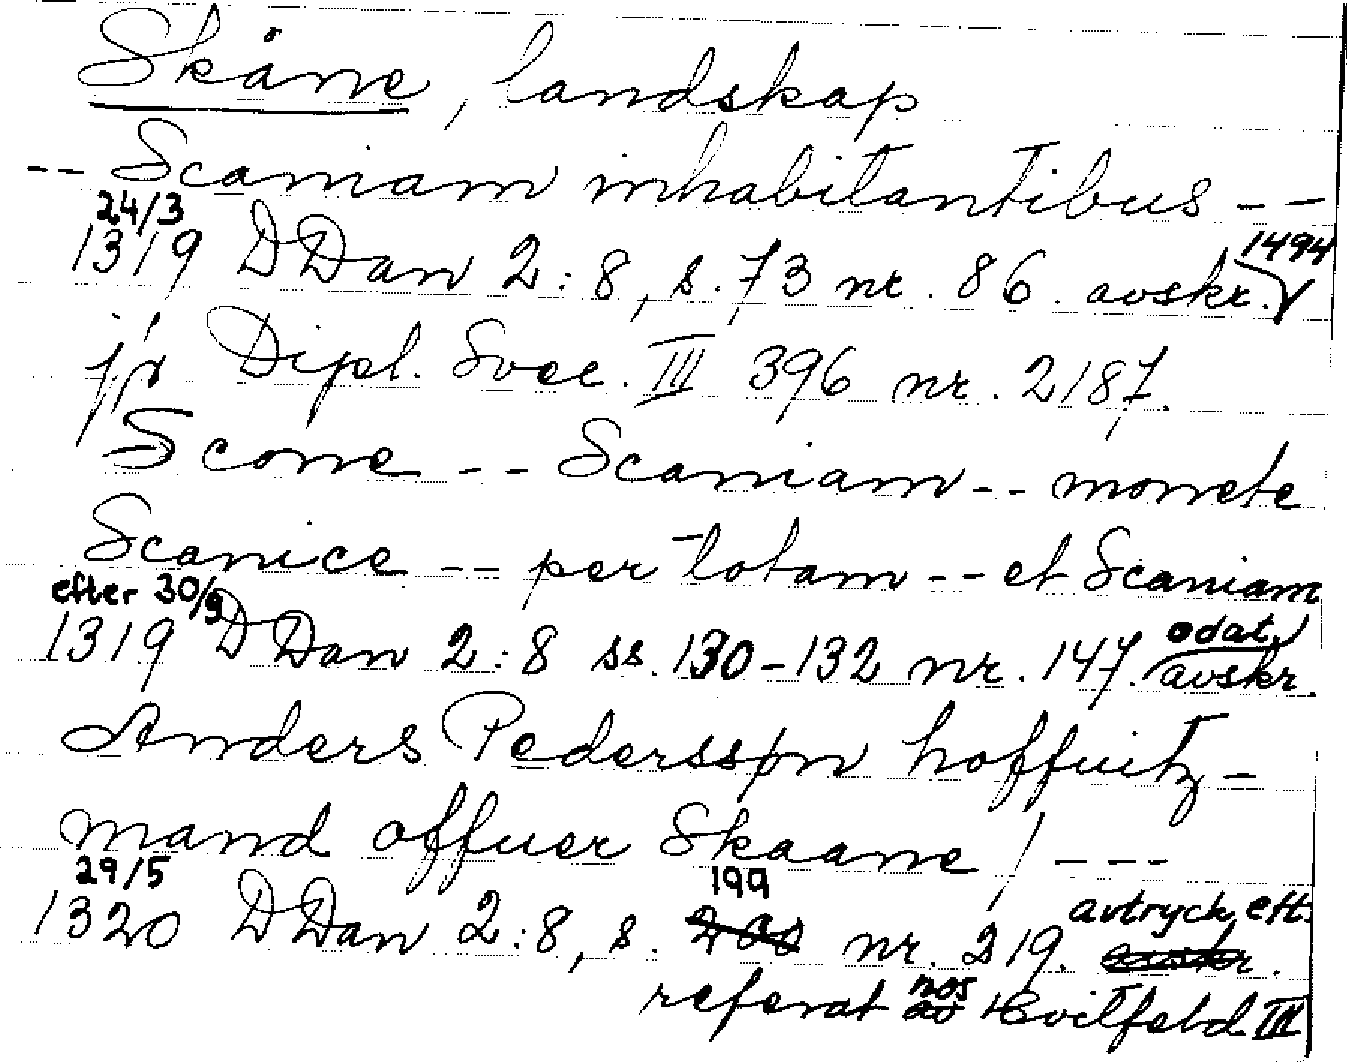 Skåne, landskap
-- Scaniam inhabitantibus --
24/3
1319 DDan 2:8, s. 73 nr. 86. avskr. 1494
jfr Dipl. Svec. III 396 nr. 2187.
Scone -- Scaniam -- monete
Scanice -- per totam -- et Scaniam
efter 30/9
1319 DDan 2:8 ss. 130-132 nr. 147. odat. avskr.
Anders Pederssøn hoffuitz-
mand offuer Skaane / ---
29/5
1320 DDan 2:8, s. 199 nr. 219. avtryck eft.
referat hos Hvitfeld III